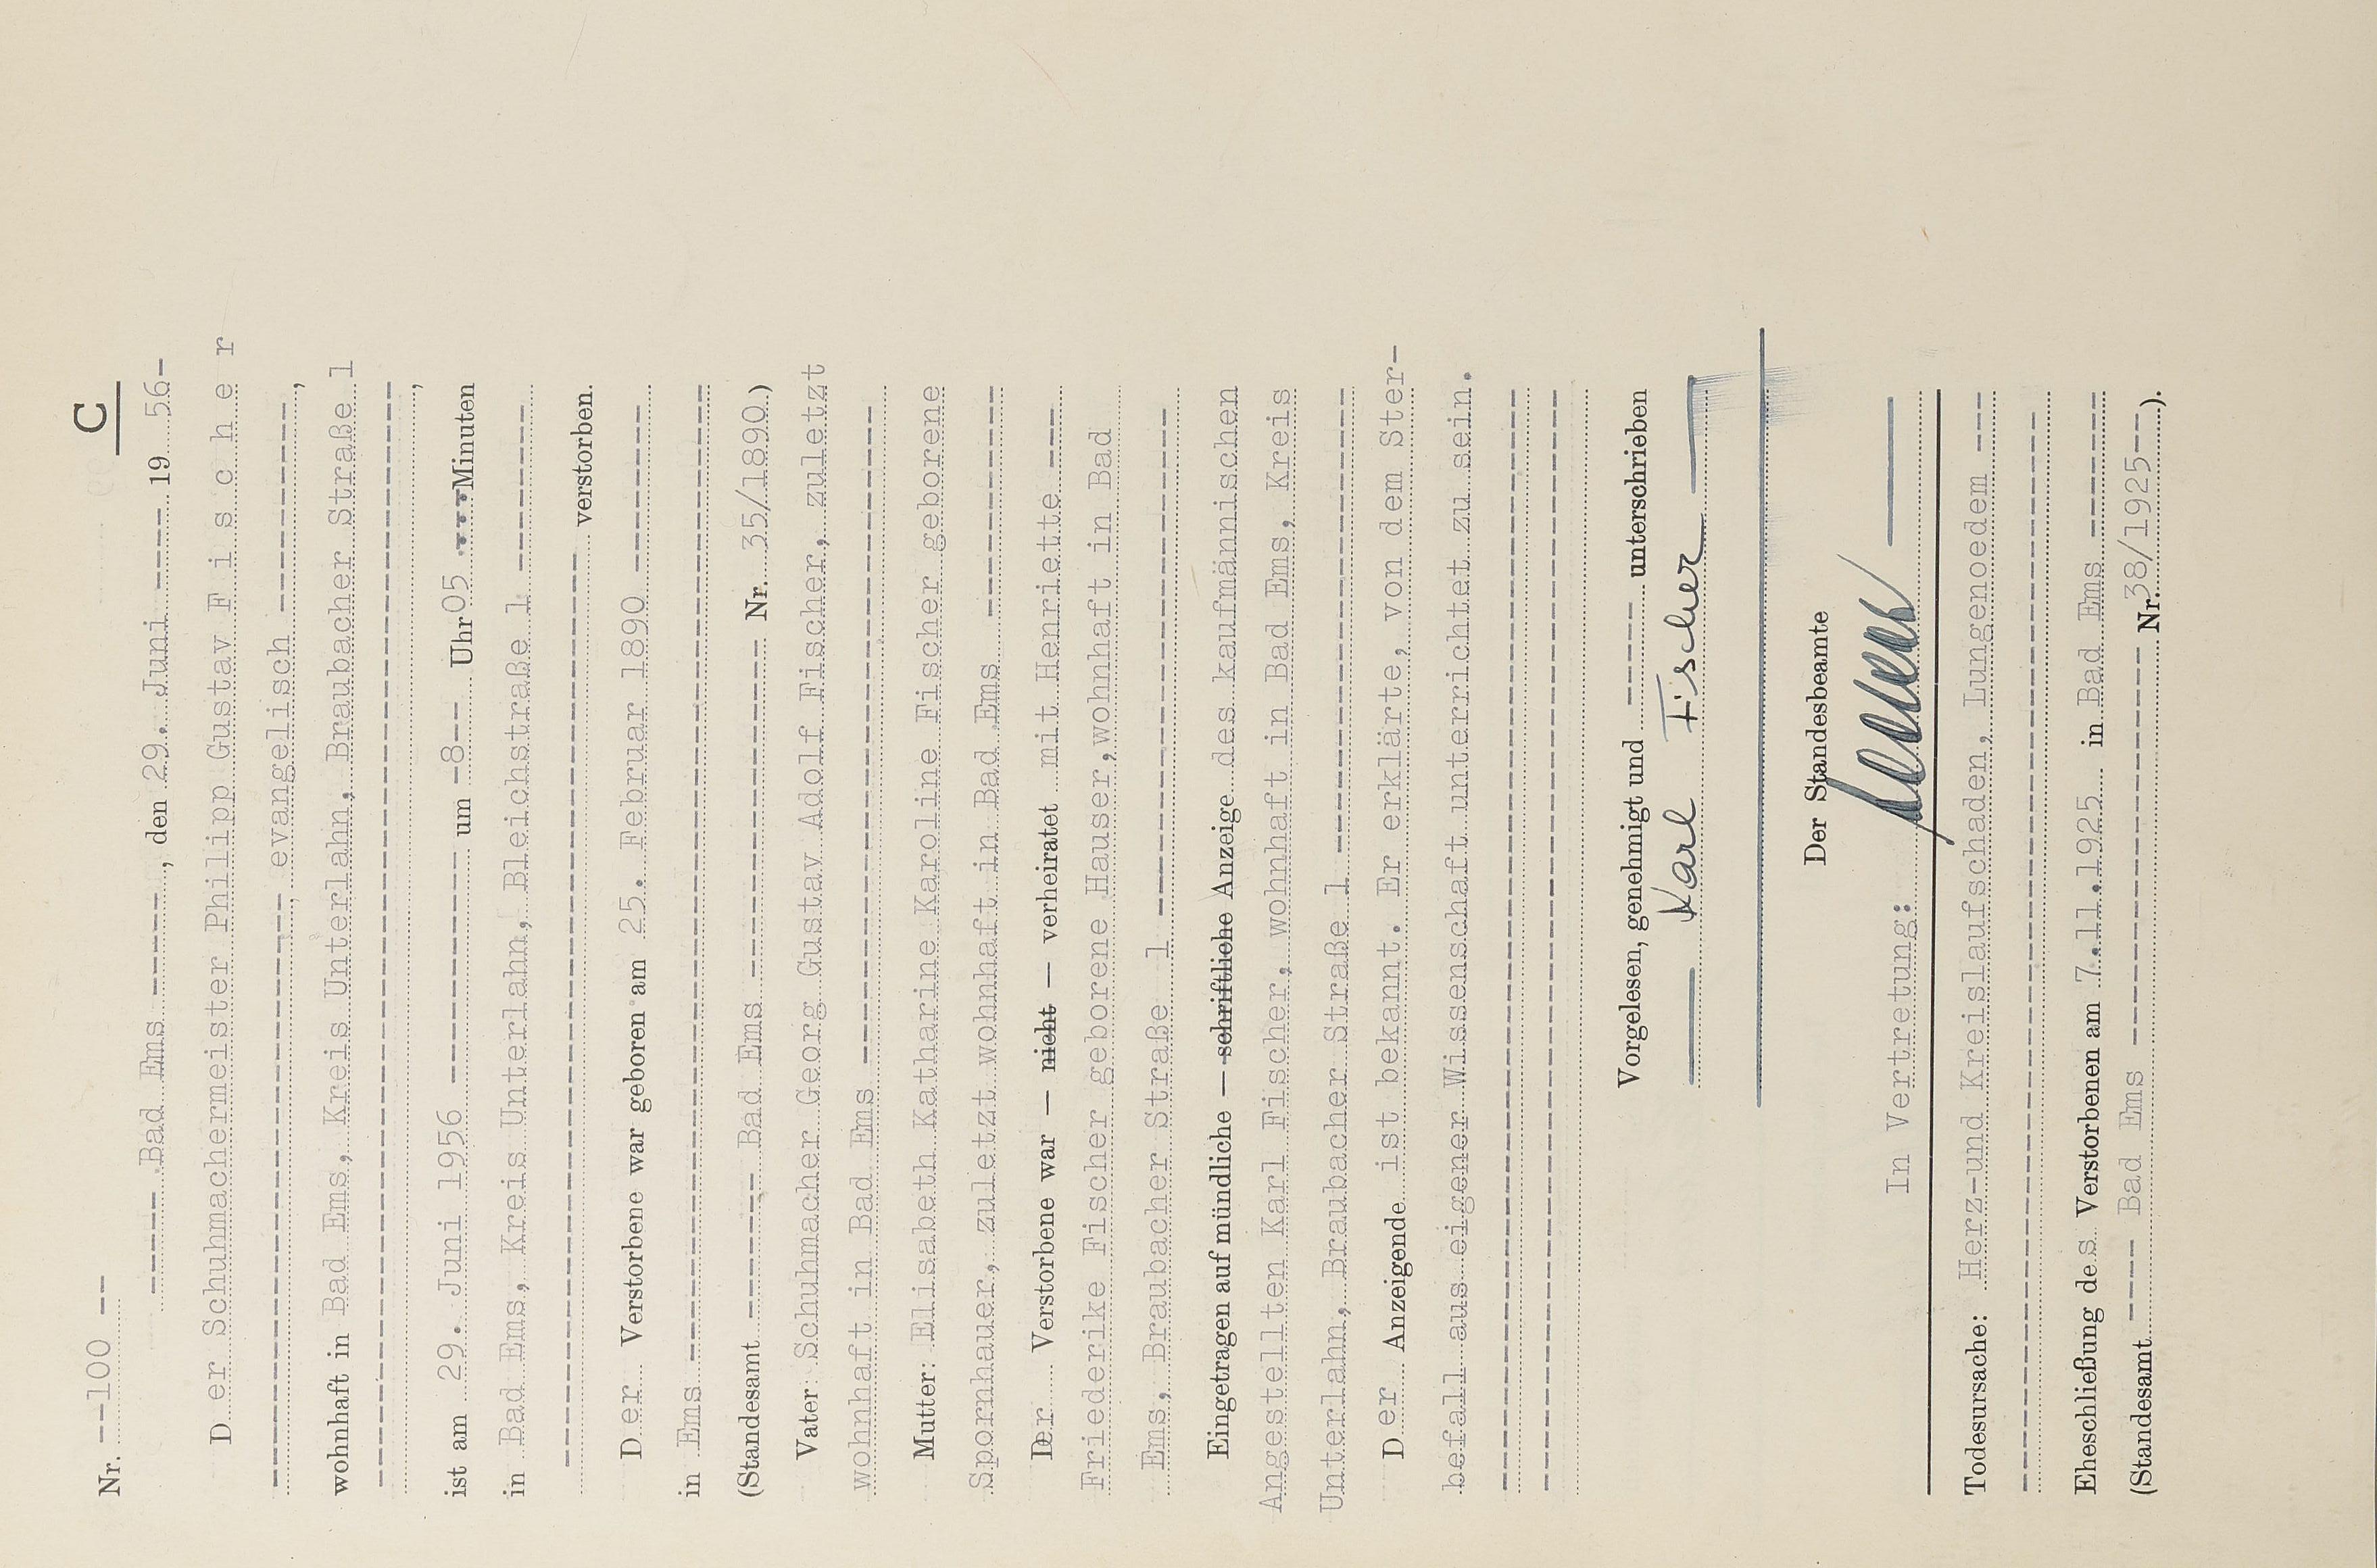 C
Nr. --100 --
------ Bad Ems ------, den 29. Juni ----- 19 56-
D er Schuhmachermeister Philipp Gustav F i s c h e r
----------------------, evangelisch -------------,
wohnhaft in Bad Ems, Kreis Unterlahn, Braubacher Straße 1
----------------------------------------------------,
ist am 29. Juni 1956 -------------- um -8-- Uhr 05 ....Minuten
in Bad Ems, Kreis Unterlahn, Bleichstraße 1 ----------
-------------------------------------------- verstorben.
D er Verstorbene war geboren am 25. Februar 1890 ----------
in Ems ------------------------------------------------
(Standesamt -------- Bad Ems ---------------- Nr. 35/1890.)
Vater: Schuhmacher Georg Gustav Adolf Fischer, zuletzt
wohnhaft in Bad Ems -----------------------------------
Mutter: Elisabeth Katharine Karoline Fischer geborene
Spornhauer, zuletzt wohnhaft in Bad Ems -------------
Der Verstorbene war — nicht — verheiratet mit Henriette ---
Friederike Fischer geborene Hauser,wohnhaft in Bad
Ems, Braubacher Straße 1 ---------------------------
Eingetragen auf mündliche — schriftliche Anzeige des kaufmännischen
Angestellten Karl Fischer, wohnhaft in Bad Ems, Kreis
Unterlahn, Braubacher Straße 1 -------------------------
D er Anzeigende ist bekannt. Er erklärte, von dem Ster-
befall aus eigener Wissenschaft unterrichtet zu sein.
Vorgelesen, genehmigt und ------ unterschrieben
Karl Fischer
Der Standesbeamte
In Vertretung:
Todesursache: Herz-und Kreislaufschaden, Lungenoedem ---
Eheschließung des Verstorbenen am 7.11.1925 in Bad Ems -------
(Standesamt ---- Bad Ems ---------------------- Nr. 38/1925--).